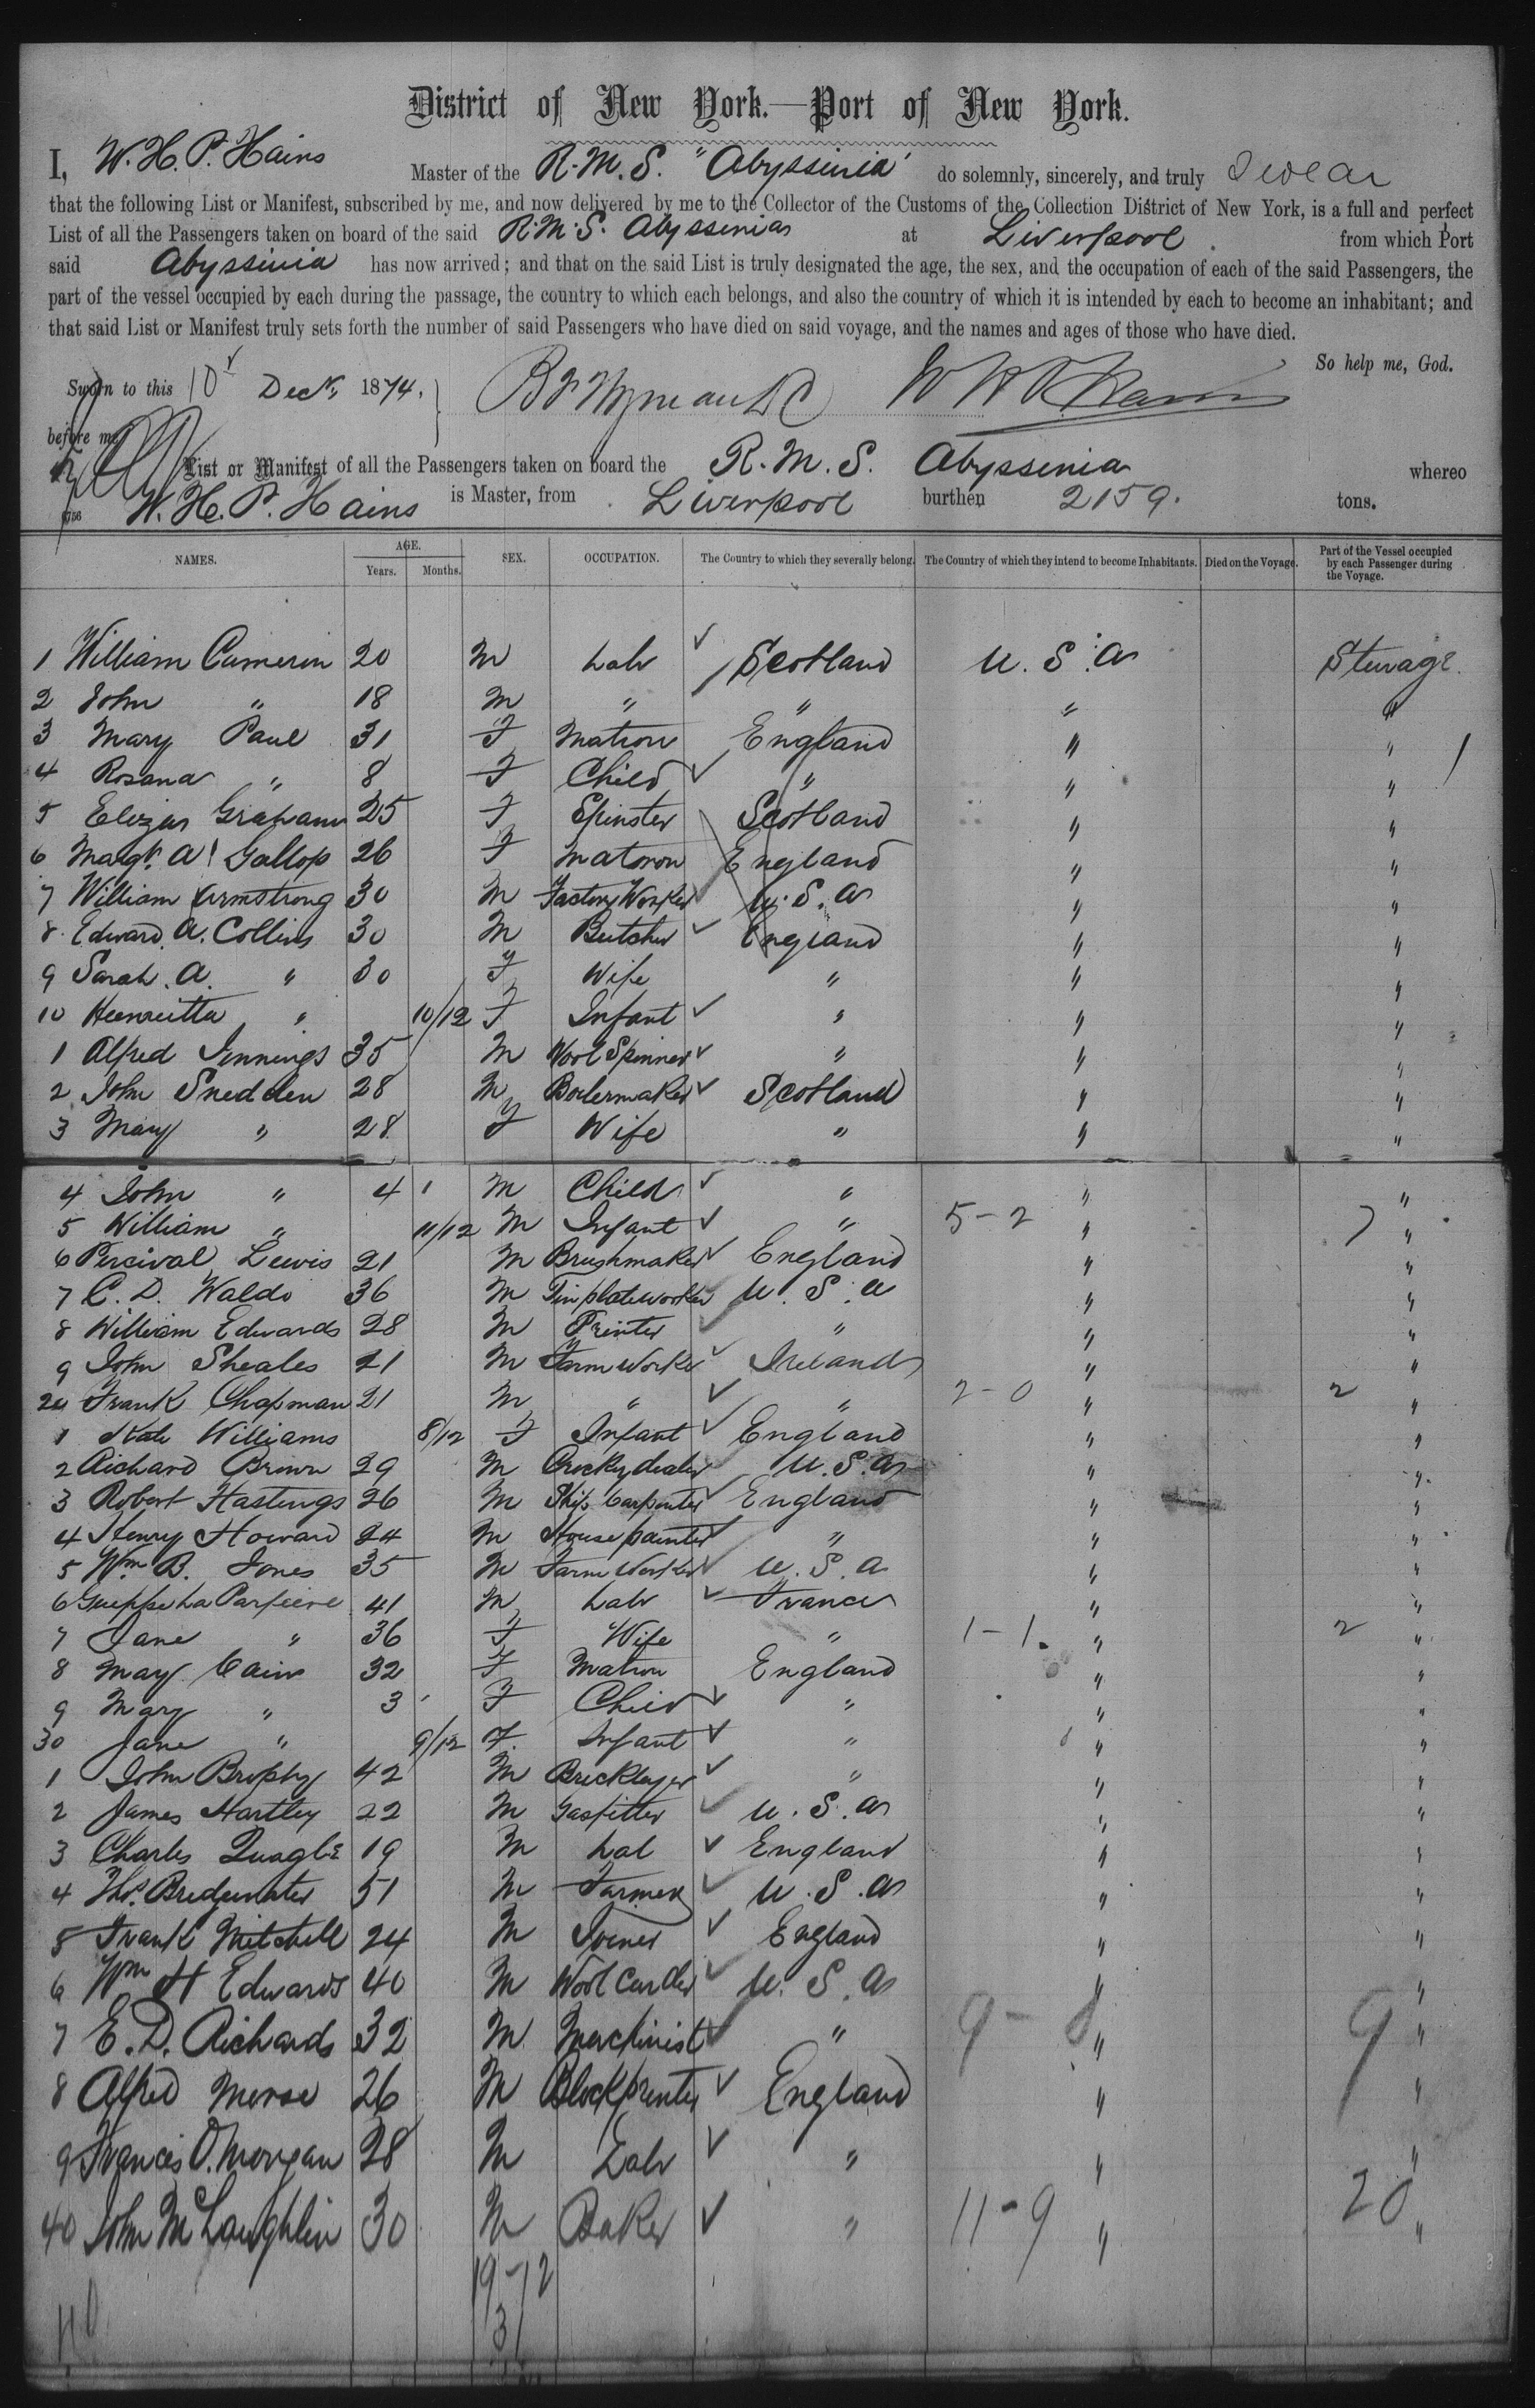 District of New York.—Port of New York.
I, W. H. P. Hains Master of the R.M.S. "Abyssinia" do solemnly, sincerely, and truly swear
that the following List or Manifest, subscribed by me, and now delivered by me to the Collector of the Customs of the Collection District of New York, is a full and perfect
List of all the Passengers taken on board of the said R.M.S. Abyssinia at Liverpool from which Port
said Abyssinia has now arrived; and that on the said List is truly designated the age, the sex, and the occupation of each of the said Passengers, the
part of the vessel occupied by each during the passage, the country to which each belongs, and also the country of which it is intended by each to become an inhabitant; and
that said List or Manifest truly sets forth the number of said Passengers who have died on said voyage, and the names and ages of those who have died.
So help me, God.
Sworn to this 10 Decr. 1874.
before me
List or Manifest of all the Passengers taken on board the R. M. S. Abyssinia whereo
W. H. P. Hains is Master, from Liverpool burthen 2159. tons.
NAMES. AGE. Years. Months. SEX. OCCUPATION. The Country to which they severally belong. The Country of which they intend to become Inhabitants. Died on the Voyage. Part of the Vessel occupied by each Passenger during the Voyage.
1 William Cameron 20 M Labr Scotland U. S. A Steerage
2 John " 18 M " " " "
3 Mary Paul 31 F Matron England " "
4 Rosana " 8 F Child " " " 1
5 Eliza Graham 25 F Spinster Scotland " "
6 Margt. A. Gallop 26 F Matron England " "
7 William Armstrong 30 M Factory Worker U.S.A " "
8 Edward A. Collins 30 M Butcher England " "
9 Sarah A. " 30 F Wife " " "
10 Henrietta " 10/12 F Infant " " "
1 Alfred Jennings 35 M Wool Spinner " " "
2 John Snedden 28 M Boilermaker Scotland " "
3 Mary " 28 F Wife " " "
4 John " 4 M Child " " "
5 William " 11/12 M Infant " 5-2 " 7 "
6 Percival Lewis 21 M Brushmaker England " "
7 C. D. Waldo 36 M Tinplateworker U. S. A " "
8 William Edwards 28 M Printer " " "
9 John Sheales 21 M Farm Worker Ireland " "
20 Frank Chapman 21 M " " 2-0 " 2 "
1 Kate Williams 8/12 F Infant England " "
2 Richard Brown 29 M Crockery dealer U.S.A " "
3 Robert Hastings 26 M Ship Carpenter England " "
4 Henry Howard 24 M House painter " " "
5 Wm B. Jones 35 M Farm Worker U. S. A " "
6 41 M Labr France " "
7 Jane " 36 F Wife " 1-1. " 2 "
8 Mary Cain 32 F Matron England " "
9 Mary " 3 F Child " " "
30 Jane " 9/12 F. Infant " " "
1 John Brophy 42 M Bricklayer " " "
2 James Hartley 22 M Gasfitter U. S. A " "
3 Charles Quagle 19 M Lab England " "
4 Thos. Bridgwater 51 M Farmer U. S. A " "
5 Frank Mitchell 24 M Joiner England " "
6 Wm H Edwards 40 M Wool Carder U. S. A " "
7 E. D. Richards 32 M Machinist " 9-8 " 9 "
8 Alfred Morse 26 M Blockprinter England " "
9 Francis O. Morgan 28 M Labr " " "
40 John McLaughlin 30 M Baker " 11-9 " 20 "
19-12
31
40